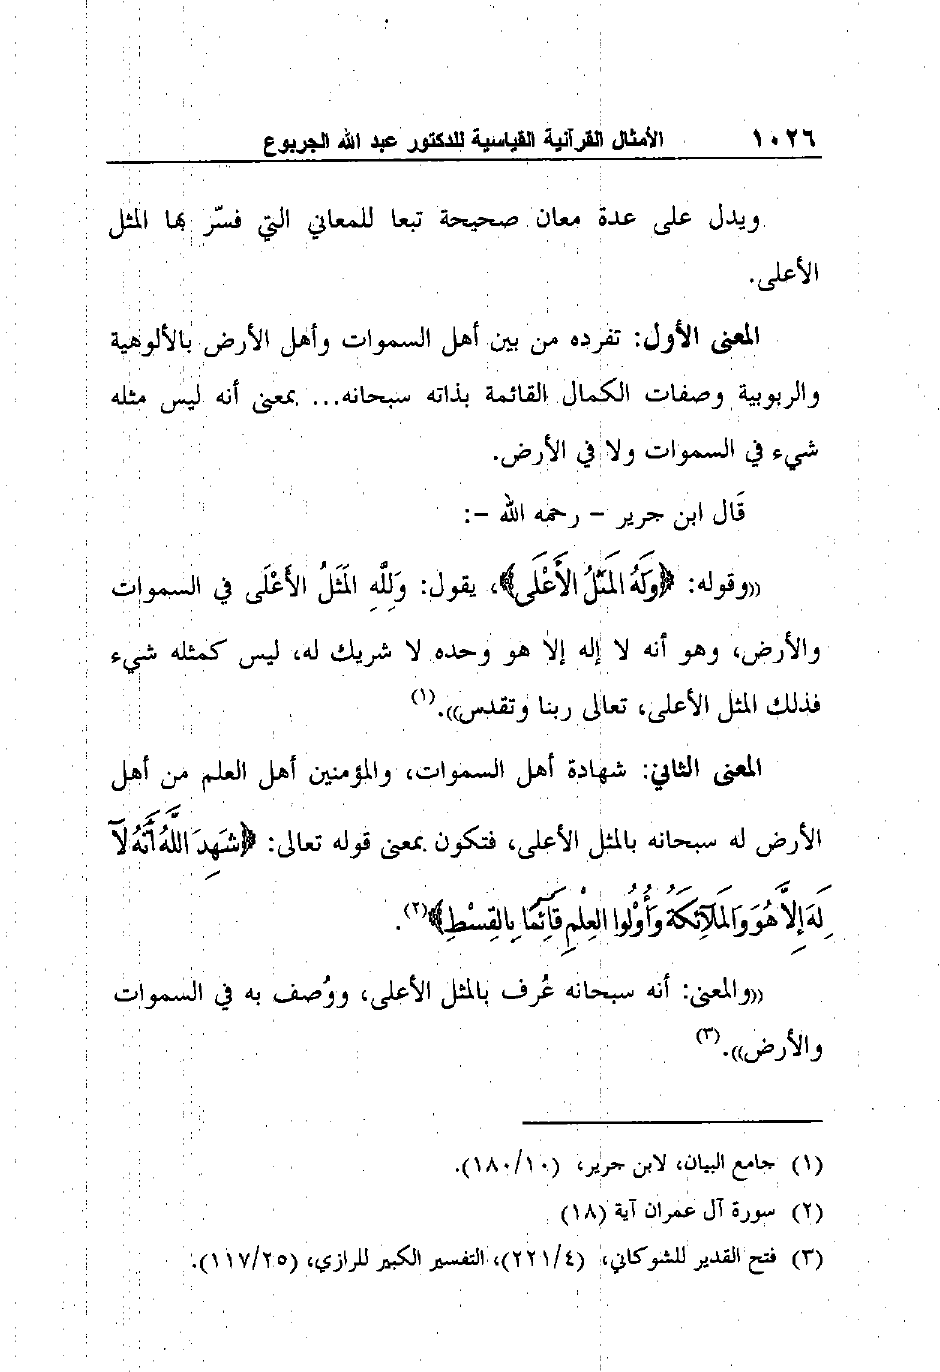 ١٠٢٦ الأمثال القرآنية القياسية للدكتور عبد الله الجربوع
ويدل على عدة معان صحيحة تبعا للمعاني التي فسّر بها المثل
الأعلى.
المعنى الأول: تفرده من بين أهل السموات وأهل الأرض بالألوهية
والربوبية وصفات الكمال القائمة بذاته سبحانه... بمعنى أنه ليس مثله
شيء في السموات ولا في الأرض.
قَال ابن جرير – رحمه الله –:
((وقوله: ﴿وَلَهُ المَثَلُ الأَعْلَى﴾، يقول: وَلِلَّهِ المَثَلُ الأَعْلَى في السموات
والأرض، وهو أنه لا إله إلا هو وحده لا شريك له، ليس كمثله شيء
فذلك المثل الأعلى، تعالى ربنا وتقدس)).(١)
المعنى الثاني: شهادة أهل السموات، والمؤمنين أهل العلم من أهل
الأرض له سبحانه بالمثل الأعلى، فتكون بمعنى قوله تعالى: ﴿شَهِدَ اللَّهُ أَنَّهُ لَآ
إِلَهَ إِلاَّ هُوَ وَالمَلَآئِكَةُ وَأُوْلُوا العِلْمِ قَآئِمًا بِالقِسْطِ﴾(٢).
((والمعنى: أنه سبحانه عُرف بالمثل الأعلى، ووُصف به في السموات
والأرض)).(٣)
(١) جامع البيان، لابن جرير، (١٨٠/١٠).
(٢) سورة آل عمران آية (١٨)
(٣) فتح القدير للشوكاني، (٢٢١/٤)، التفسير الكبير للرازي، (١١٧/٢٥).